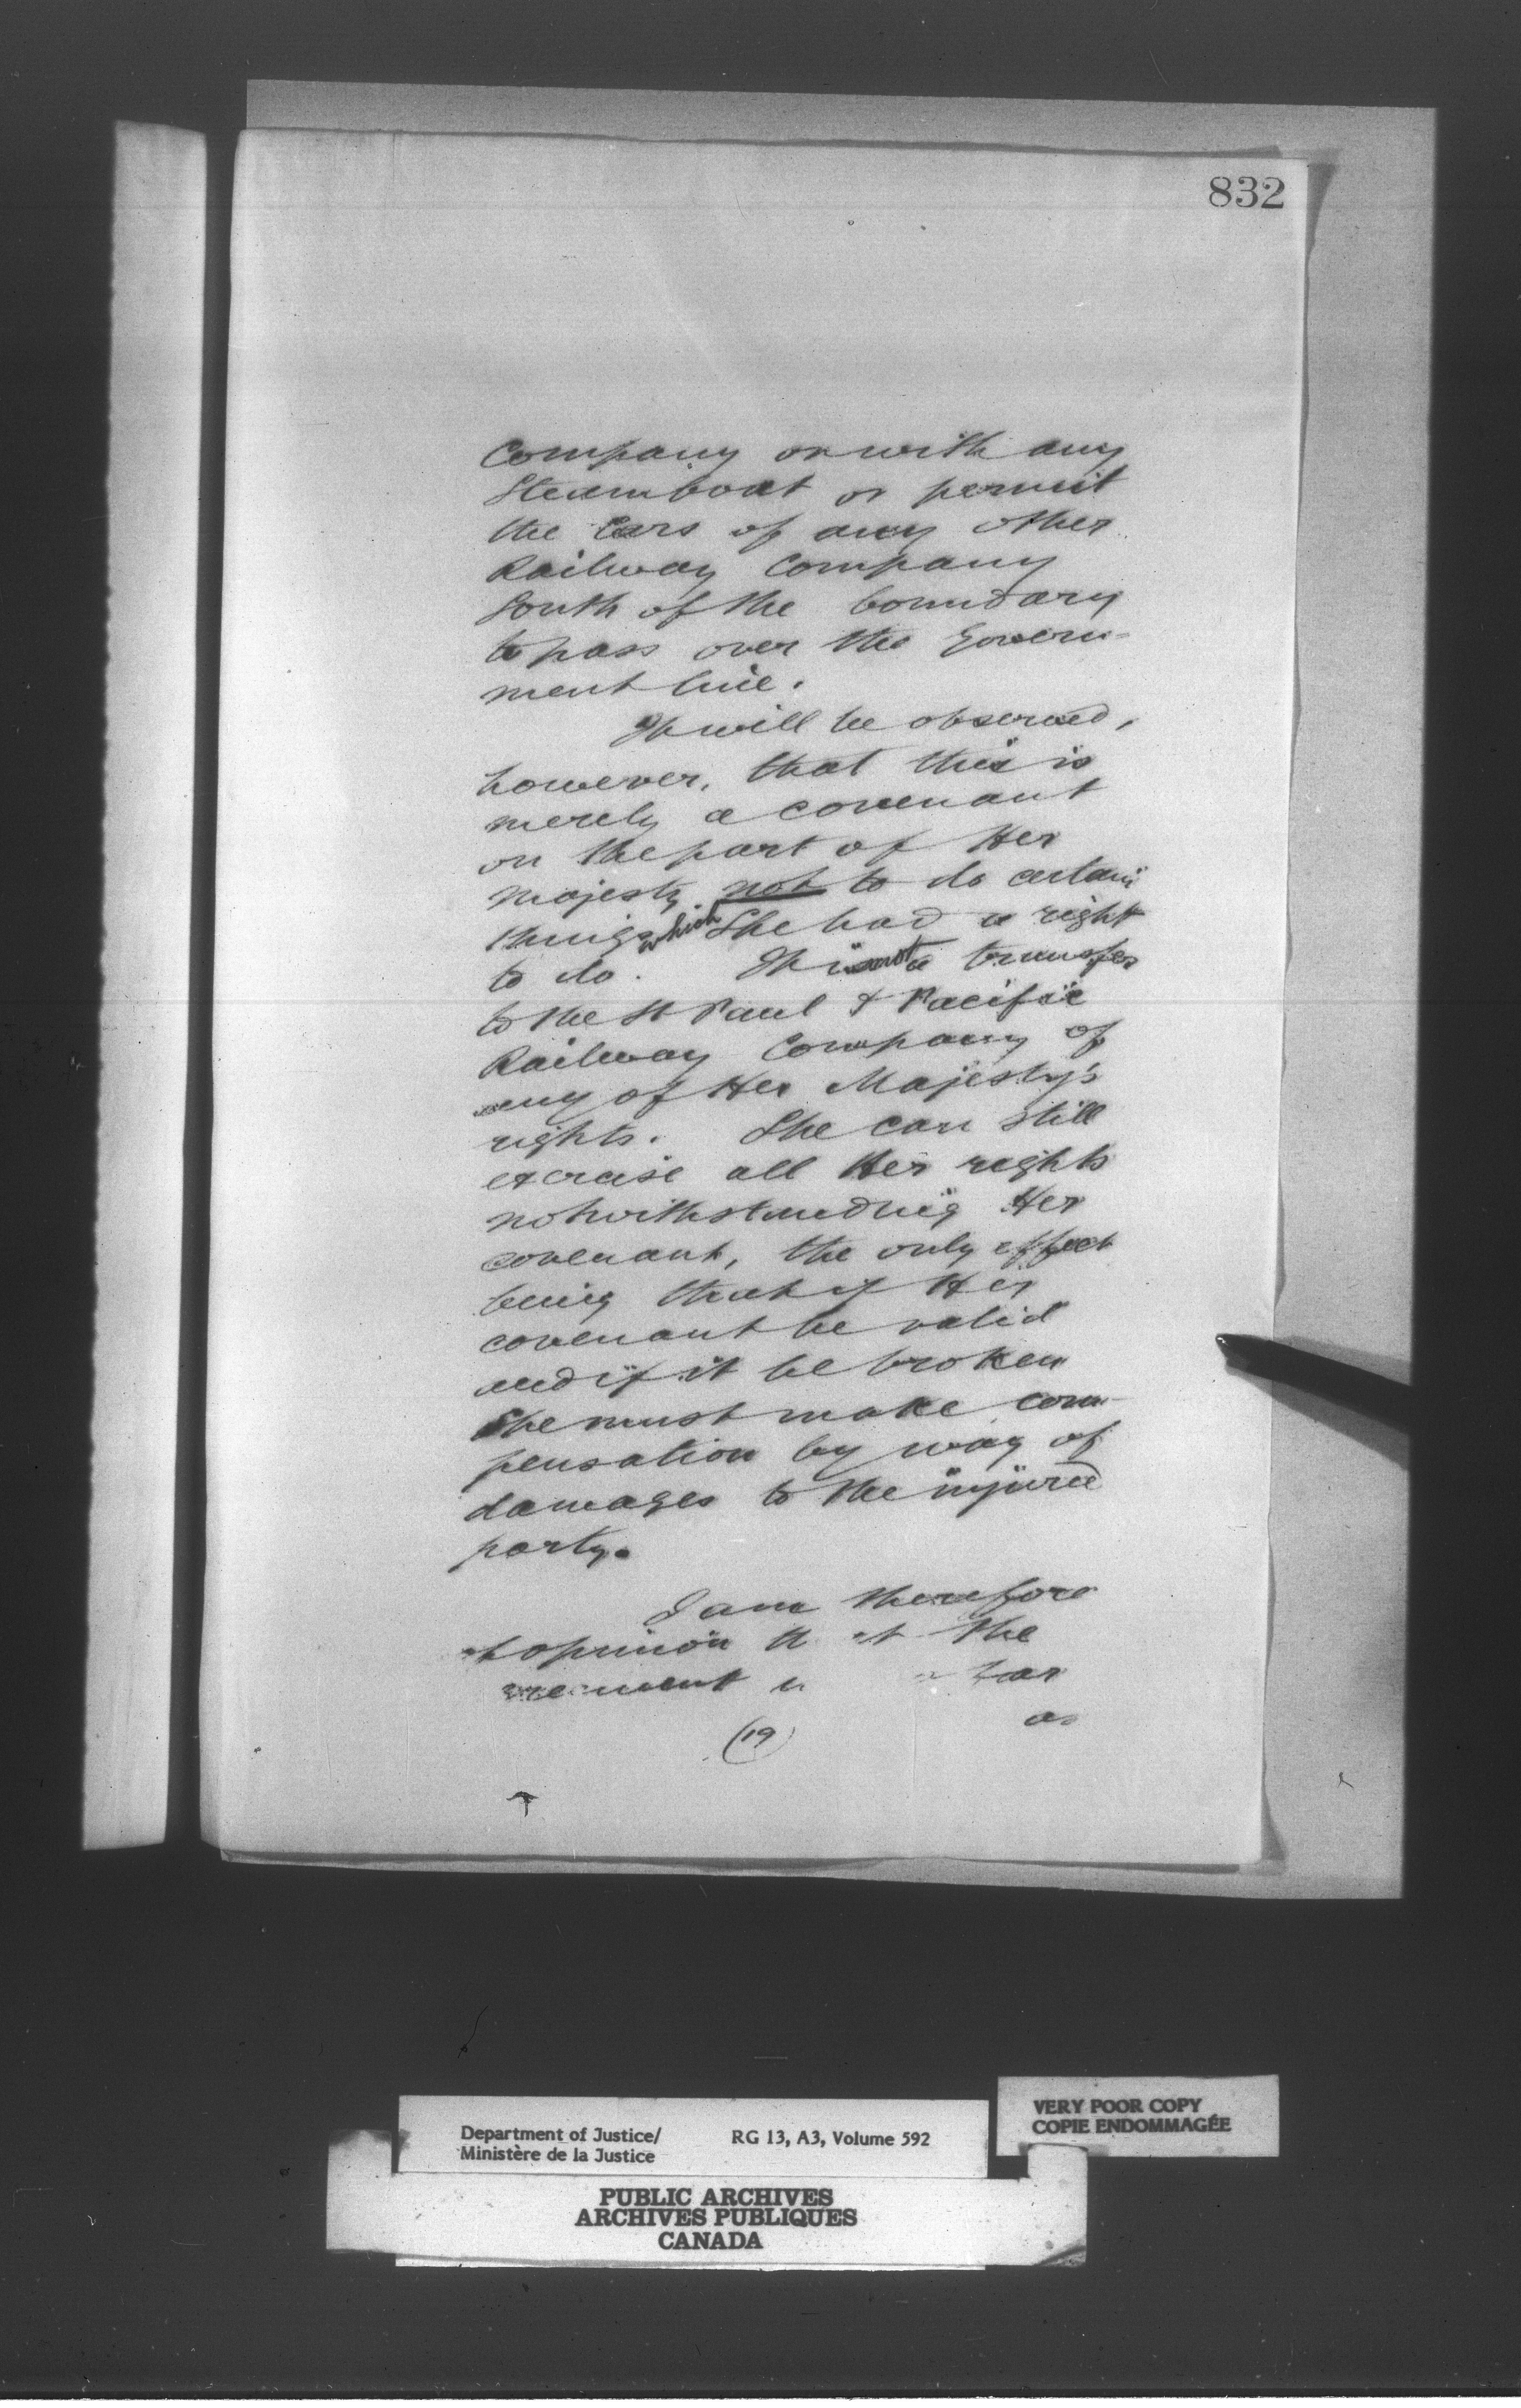 832
Company or with any
Steamboat or permit
the Cars of any other
Railway Company
South of the boundary
to pass over the Govern-
ment line.
It will be observed,
however, that this is
merely a covenant
on the part of Her
Majesty not to do certain
things which She had a right
to do. It is not a transfer
to the St Paul & Pacific
Railway Company of
any of Her Majesty's
rights. She can still
exercise all Her rights
notwithstanding Her
covenant, the only effect
being that if Her
covenant be valid
and if it be broken
She must make com-
pensation by way of
damages to the injured
party.
I am therefore
opinion the
as
(19)
Department of Justice/
Ministère de la Justice
RG 13, A3, Volume 592
VERY POOR COPY
COPIE ENDOMMAGÉE
PUBLIC ARCHIVES
ARCHIVES PUBLIQUES
CANADA